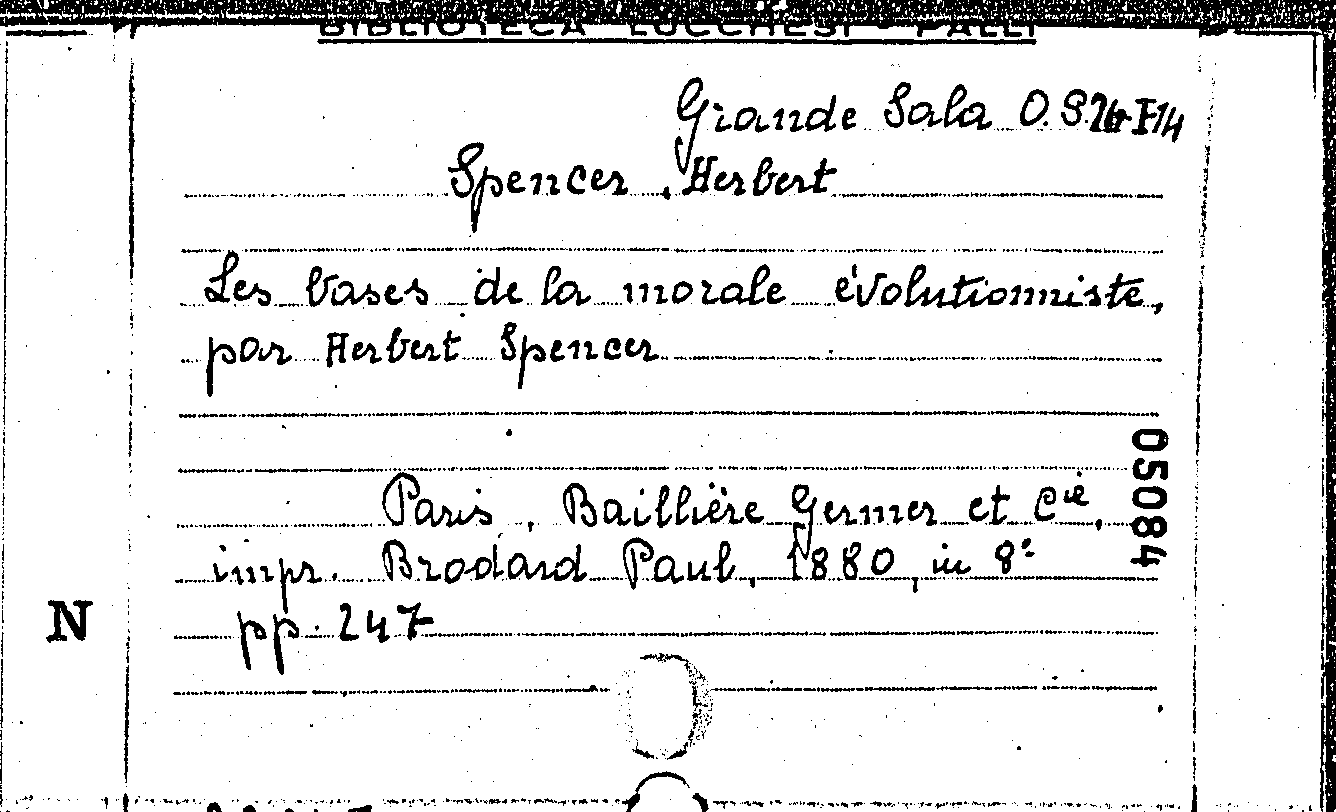 BIBLIOTECA LUCCHESI - PALLI
Grande Sala O. S.
Spencer, Herbert
Les bases de la morale évolutionniste,
par Herbert Spencer
05084
Paris, Baillière Germer et Cie,
impr. Brodard Paul, 1880, in 8°
N
pp. 247